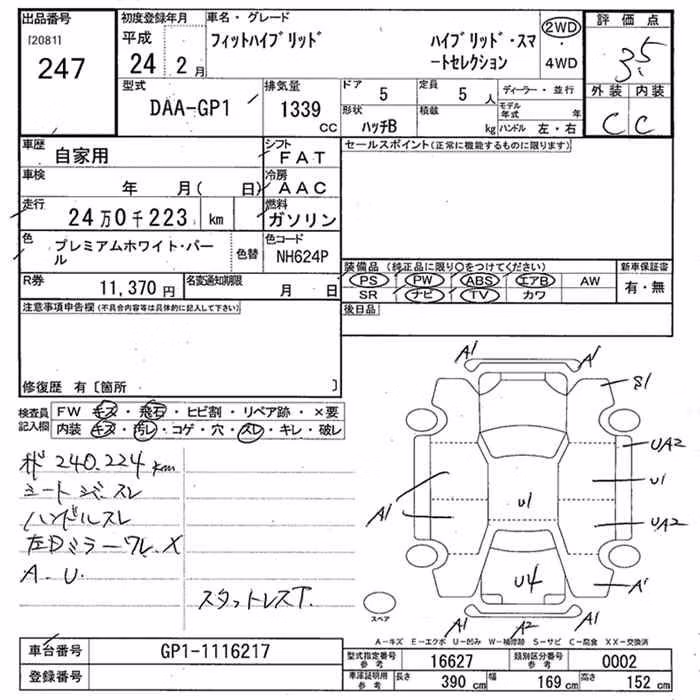 出品番号
[2081]
247
初度登録年月
平成
24 2 月
車名・グレード
フィットハイブリッド ハイブリッド・スマートセレクション
2WD
・
4WD
評価点
3.5
外装 内装
C C
型式
DAA-GP1
排気量
1339 CC
ドア 5
定員 5 人
形状 ハッチB
積載 kg
ディーラー・並行
モデル年式 年
ハンドル 左・右
車歴 自家用
シフト FAT
車検 年 月( 日)
冷房 AAC
走行 24万0千223 km
燃料 ガソリン
色 プレミアムホワイト・パール
色替
色コード NH624P
R券 11,370 円
名変通知期限 月 日
セールスポイント(正常に機能するものに限ります)
装備品 (純正品に限り○をつけてください)
PS PW ABS エアB AW
SR ナビ TV カワ
新車保証書
有・無
後日品
注意事項申告欄(不具合内容等は具体的に記入して下さい)
修復歴 有〔箇所 〕
検査員記入欄
FW キズ・飛石・ヒビ割・リペア跡・×要
内装 キズ・汚レ・コゲ・穴・スレ・キレ・破レ
240.224 km
シートシミ、スレ
ハンドルスレ
左Dミラーワレ X
A. U.
スタットレスT.
A1 A1
S1
UA2
U1
U1
A1
UA2
U4
A1
A1 A2 A1
スペア
A-キズ E-エクボ U-凹み W-補修跡 S-サビ C-腐食 XX-交換済
車台番号 GP1-1116217
登録番号
型式指定番号参考 16627
類別区分番号参考 0002
車庫証明用参考 長さ 390 cm 幅 169 cm 高さ 152 cm